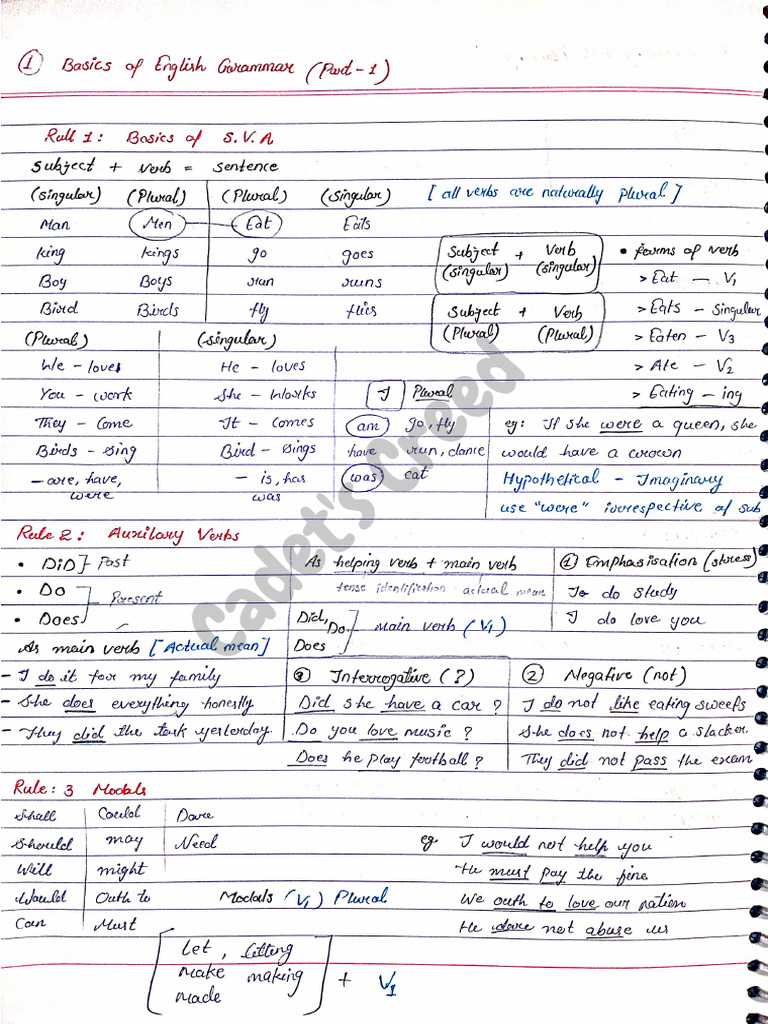 ① Basics of English Grammar (Part-1)
Rull 1: Basics of S.V.A
Subject + Verb = Sentence
(singular) (Plural) (Plural) (Singular) [all verbs are naturally plural]
Man Men Eat Eats
King Kings go goes Subject (singular) + Verb (singular) • forms of verb
Boy Boys run runs > Eat — V1
Bird Birds fly flies Subject (Plural) + Verb (Plural) > Eats - Singular
(Plural) (singular) > Eaten - V3
We - loves He - loves > Ate - V2
You - work She - Works I Plural > Eating - ing
They - Come It - Comes am go, fly eg: If she were a queen, she
Birds - sing Bird - Sings have run, dance would have a crown
- are, have, were - is, has was was eat Hypothetical - Imaginary
use "were" irrespective of sub
Rule 2: Auxilary Verbs
• DiD] Past As helping verb + main verb ① Emphasisation (stress)
• Do tense identification actual mean I do study
Present
• Does Did, Do Does main verb (V1) I do love you
As main verb [Actual mean]
- I do it for my family ③ Interrogative (?) ② Negative (not)
- She does everything honestly Did she have a car? I do not like eating sweets
- They did the task yesterday. Do you love music? She does not help a slacker
Does he play football? They did not pass the exam
Rule: 3 Modals
Shall Could Dare
Should may Need eg. I would not help you
Will might He must pay the fine
Would Outh to Modals (V1) Plural We outh to love our nation
Can Must He dare not abuse us
let, letting
make making + V1
made
Cadet's Creed